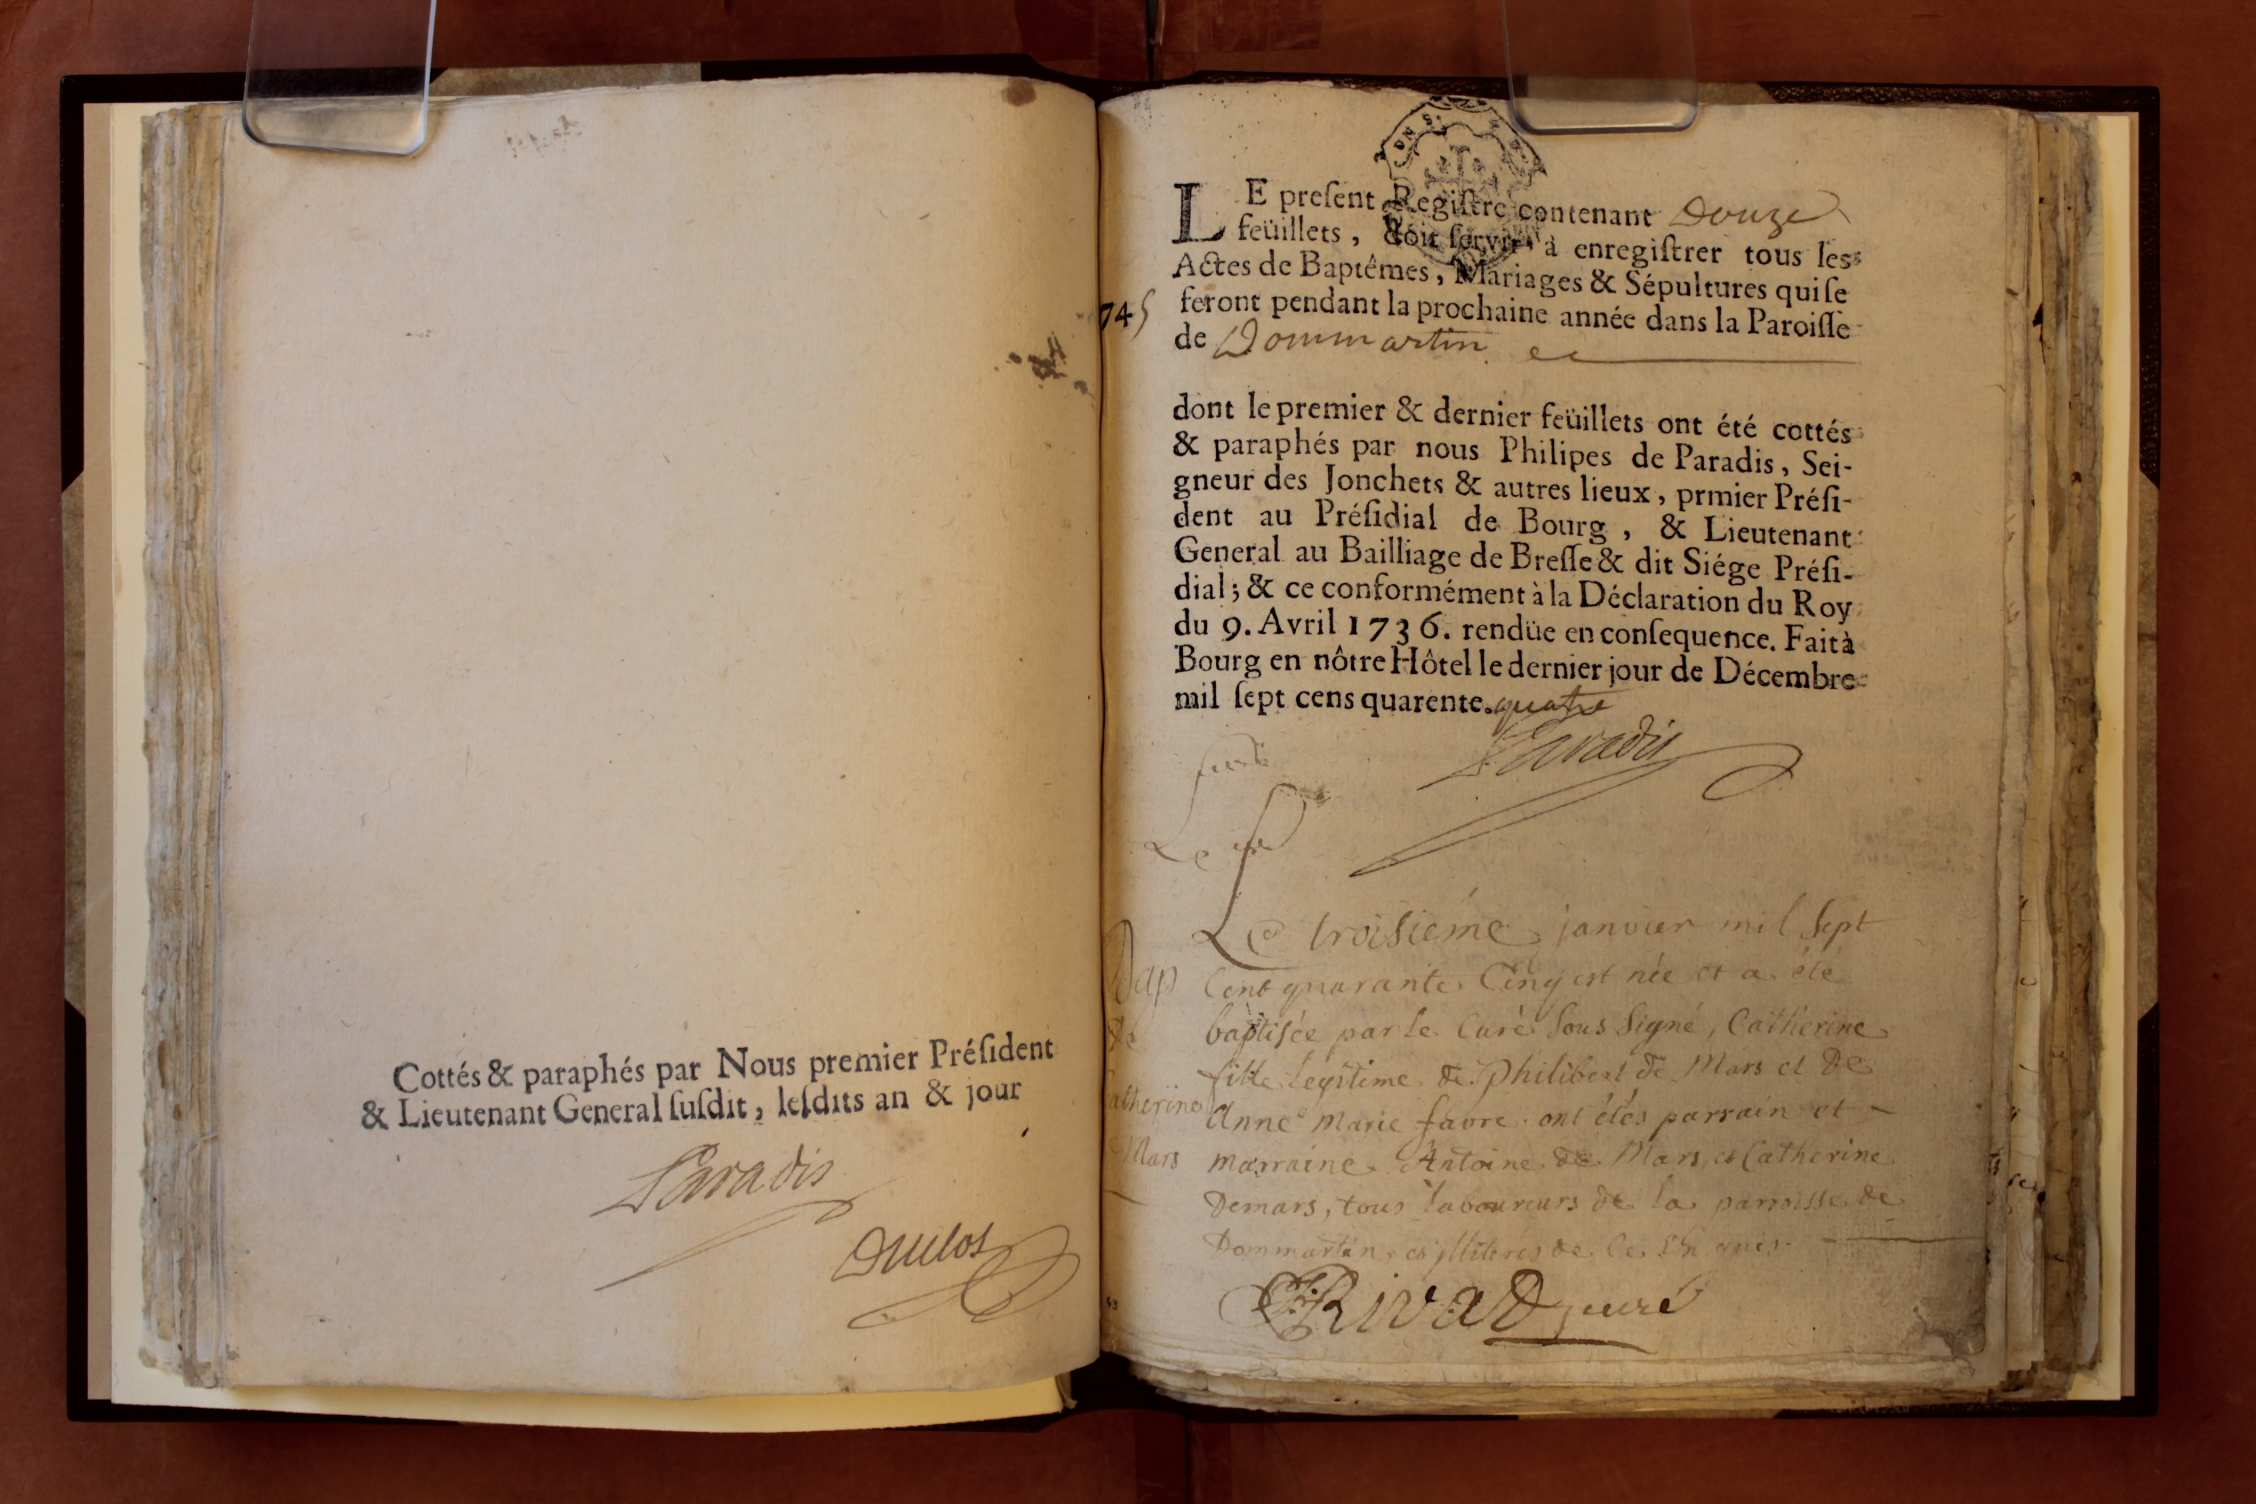 Cottés & paraphés par Nous premier Préſident
& Lieutenant General ſuſdit, leſdits an & jour
Paradis
Duclos
LE preſent Regiſtre contenant Douze
feüillets, doit ſervir à enregiſtrer tous les
Actes de Baptêmes, Mariages & Sépultures qui ſe
feront pendant la prochaine année dans la Paroiſſe
745
de Dommartin
dont le premier & dernier feüillets ont été cottés
& paraphés par nous Philipes de Paradis, Sei-
gneur des Jonchets & autres lieux, prmier Préſi-
dent au Préſidial de Bourg, & Lieutenant
General au Bailliage de Breſſe & dit Siége Préſi-
dial; & ce conformément à la Déclaration du Roy
du 9. Avril 1736. rendüe en conſequence. Fait à
Bourg en nôtre Hôtel le dernier jour de Décembre
mil ſept cens quarente. quatre
Paradis
Le troisiéme janvier mil sept
Bap
cent quarante Cinq est née et a été
de
baptisée par le Curé sous signé, Catherine
fille legitime de philibert de Mars et de
atherine
Anne Marie favre. ont étés parrain et
Mars
marraine Antoine de Mars, et Catherine
Demars, tous laboureurs de la parroisse de
Dommartin, et illiteres de ce
Rivad curé